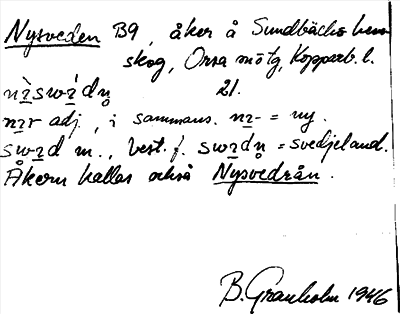 Nysveden B9, åker å Sundbäcks hem
skog, Orsa mötg, Kopparb. l.
21.
adj., i sammans. = ny.
m., best. f. = svedjeland.
Åkern kallas också Nysvedrån.
B. Granholm 1946